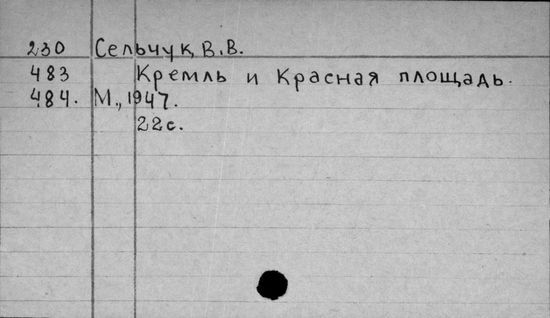 230 Сельчук, В.В.
483 Кремль и Красная площадь.
484. М., 1947.
22с.